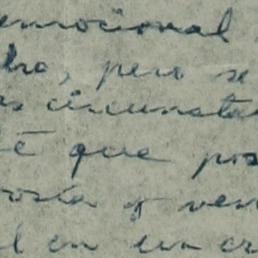 emocional
pero se
circunsta
é que pos
y ven
en un cr